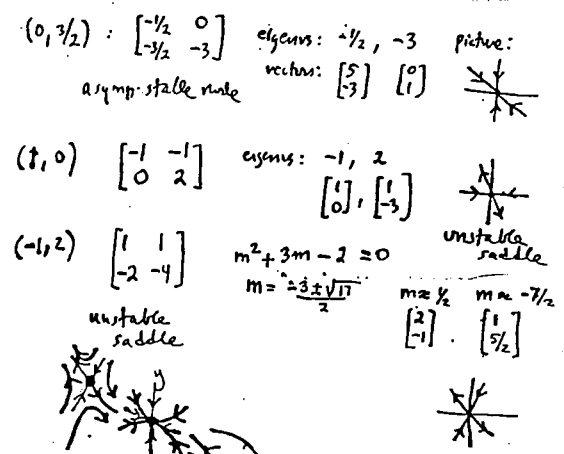 (0, 3/2) : [-1/2 0 -3/2 -3] eigenvs: -1/2, -3 picture:
vectors: [5 -3] [0 1]
asymp. stable node
(1, 0) [-1 -1 0 2] eigenvs: -1, 2
[1 0], [1 -3]
unstable saddle
(-1, 2) [1 1 -2 -4] m² + 3m - 2 = 0
m = -3 ± √17 / 2
m ≈ 1/2 m ≈ -7/2
[2 -1] . [1 5/2]
unstable saddle
y